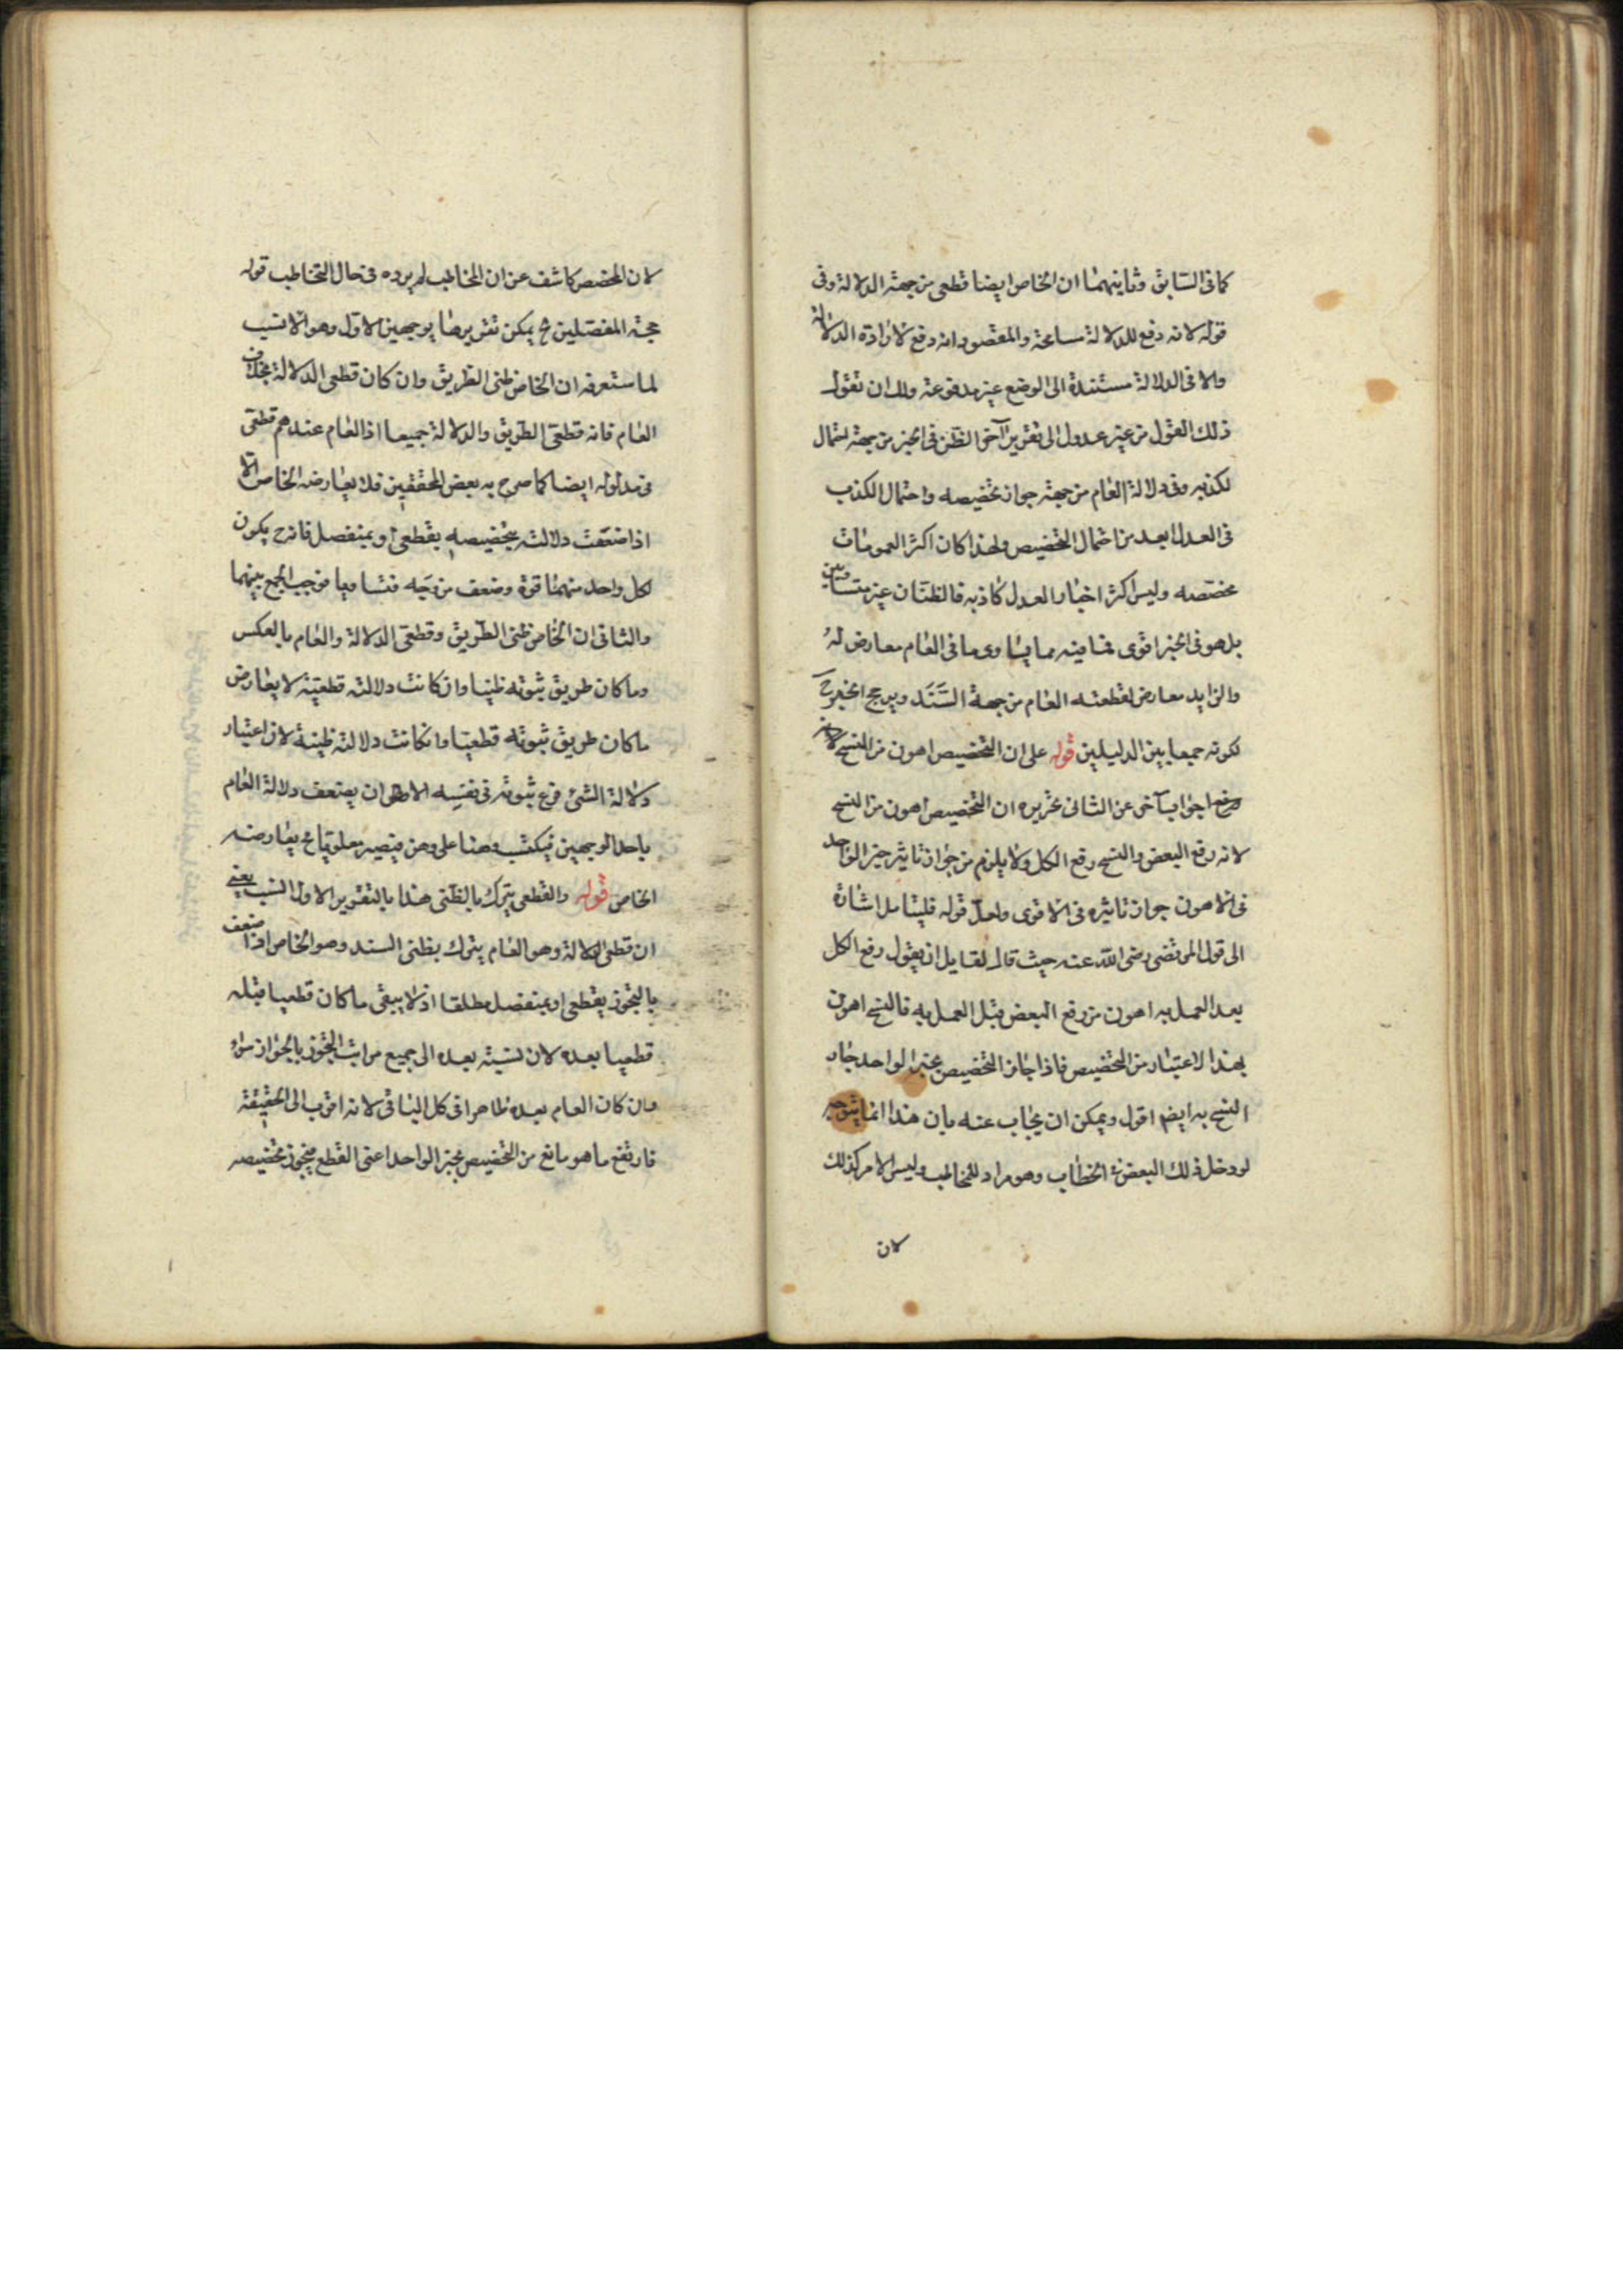 كما فى السّابق وثانيهما ان الخاص ايضا قطعى من جهة الدلالة وفى
قوله لانه دفع للدلالة مسامحة والمقصود انه دفع لارادة الدلالة
والا فى الدلالة مستندة الى الوضع غير مدفوعة ولك ان تقول
ذلك القول من غير عدول الى تقرير آخر الظن فى الخبر من جهة احتمال
لكذبه وفى دلالة العام من جهة جواز تخصيصه واحتمال الكذب
فى العدل ابعد من احتمال التخصيص ولهذا كان اكثر العمومات
مخصصه وليس اكثر اخبار العدل كاذبه فالظنّان غير متساويين
بل هو فى الخبر اقوى فما فيه مما يساوى ما فى العام معارض لهُ
والزايد معارض لقطعته العام من جهة السَّنَد ويرجح الخبر ح
لكونه جمعا بين الدليلين قوله على ان التخصيص اهون من النسخ
جواب آخر عن الثانى تحريره ان التخصيص اهون من النسخ
لانه رفع البعض والنسخ رفع الكل ولا يلزم من جواز تاثير خبر الواحد
فى الاهون جواز تاثيره فى الاقوى ولعلّ قوله فليتامل اشارة
الى قول المرتضى رضى اللّه عنه حيث قال لقايل ان يقول رفع الكل
بعد العمل به اهون من رفع البعض قبل العمل به فالنسخ اهون
بهذا الاعتبار من التخصيص فاذا جاز التخصيص بخبر الواحد جاز
النسخ به ايضم اقول ويمكن ان يجاب عنه بان هذا انما يتوجه
لو دخل ذلك البعض فى الخطاب وهو مراد للمخاطب وليس الامر كذلك
لان
لان المخصص كاشف عن ان المخاطب لم يرده فى حال التخاطب قوله
حجة المفصّلين ح يمكن تقريرها بوجهين الاول وهو الانسب
لما ستعرفه ان الخاص ظنى الطريق وان كان قطعى الدلالة بخلاف
العام فانه قطعى الطريق والدلالة جميعا اذ العام عندهم قطعى
فى مدلوله ايضا كما صرح به بعض المحققين فلا يعارضه الخاص الا
اذا ضعفت دلالته بتخصيصه بقطعى او بمنفصل فانه ح يكون
لكل واحد منهما قوة وضعف من وجه فتساويا فوجب الجمع بينهما
والثانى ان الخاص ظنى الطريق وقطعى الدلالة والعام بالعكس
وما كان طريق ثبوته ظنيا وان كانت دلالته قطعية لا يعارض
ما كان طريق ثبوته قطعيا وان كانت دلالته ظنية لان اعتبار
دلالة الشئ فرع ثبوته فى نفسه الا ان يضعف دلالة العام
باحد الوجهين فيكتسب وهنا على وهن فيصير مغلوبا ح يعارضه
الخاص قوله والقطعى يترك بالظنى هذا بالتقرير الاول انسب يعنى
ان قطعى الدلالة وهو العام يترك بظنى السند وهو الخاص اذا ضعف
بالتجوز بقطعى او بمنفصل مطلقا اذ لا يبقى ما كان قطعيا قبله
قطعيا بعده لان نسبته بعده الى جميع مراتب التجوز بالجواز سواء
وان كان العام بعده ظاهرا فى كل الباقى لانه اقرب الى الحقيقة
فارتفع ما هو مانع من التخصيص بخبر الواحد اعنى القطع فيجوز تخصيصه